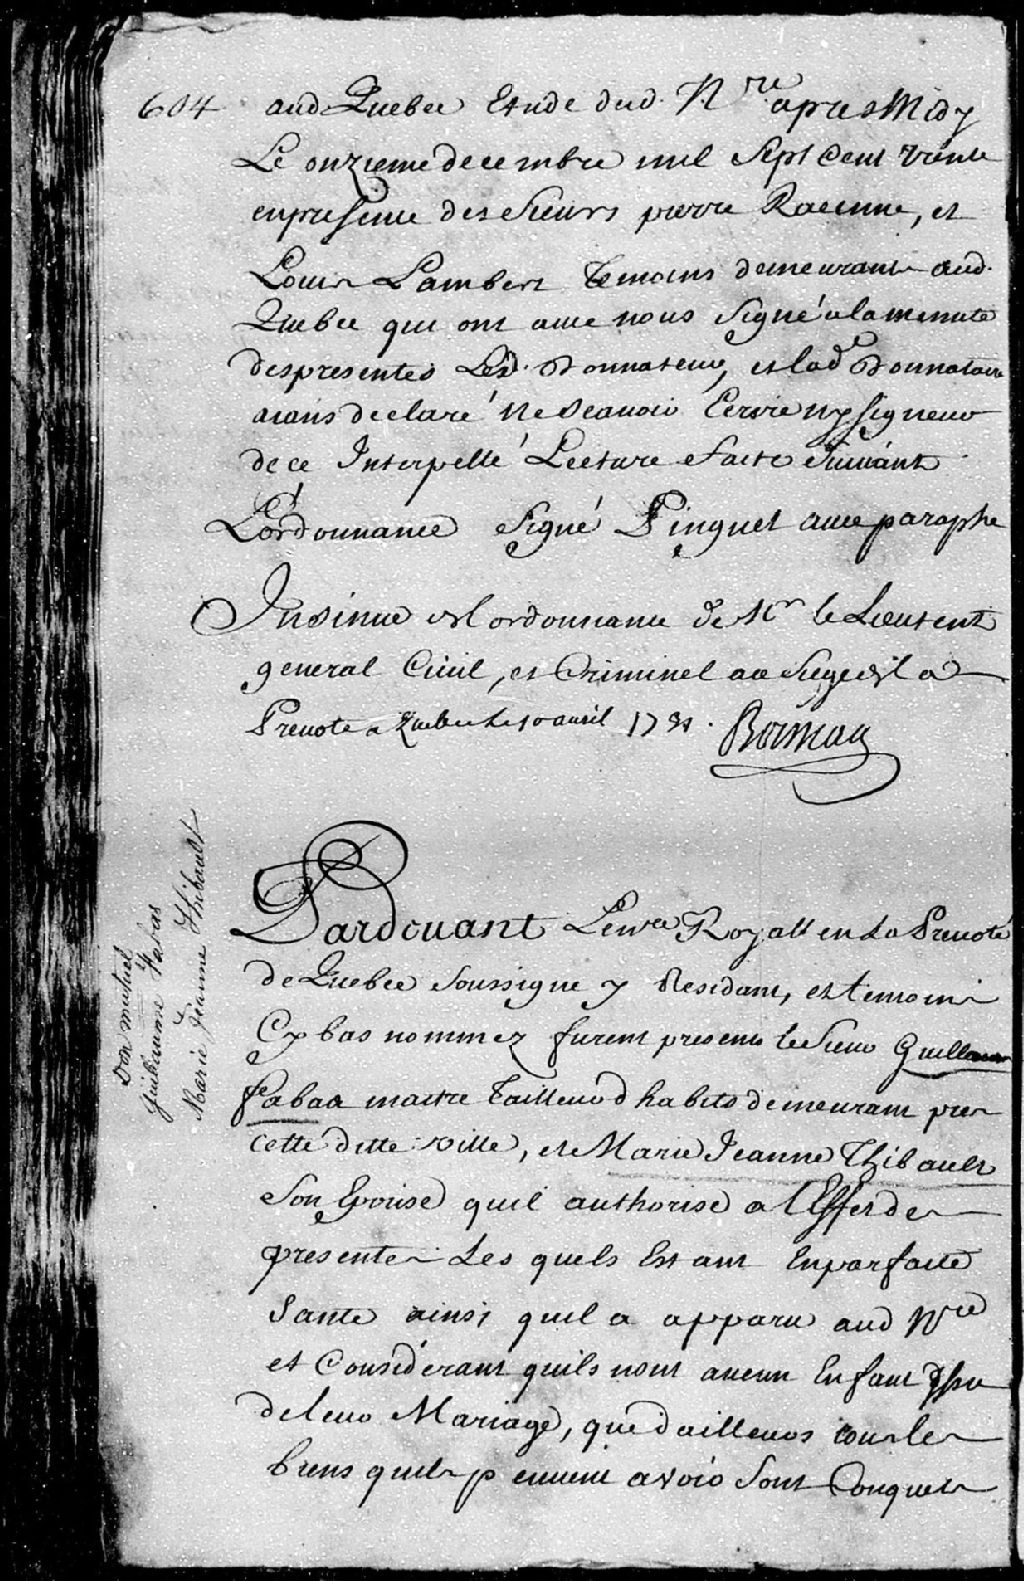 604 aud Quebec Etude dud. Nre apres Midy
Le onzieme decembre mil Sept Cent trente
en presence des Sieurs pierre Racinne, et
Louis Lambert temoins demeurant aud.
Quebec qui ont avec nous Signé a la minute
des presentes Led. Donnateur, et lad Donnataire
aians declaré Ne Scauoir Ecrire ny Signer
de ce Interpellé Lecture faite Suivant
L'ordonnance Signé Pinguet avec paraphe
Insinue ordonnance de Mr le Lieutent
general Civil, et Criminel au Siege de la
Prevote a Quebec le 10 avril 1731. Boisseau
Don mutuel
Guillaume Fabas
Marie Jeanne Thibault
Pardevant Le nre Royall en La Prevoté
de Quebec Soussigne y Residant, et temoins
Cy bas nommez furent presents le Sieur Guillaume
Fabas maitre Tailleur d'habits demeurant pres
cette ditte Ville, et Marie Jeanne Thibault
Son Epouse quil authorise a l'Effet des
presentes Les quels Estant En parfaite
Sante ainsi quil a apparu aud Nre
et Considerant quils nont aucun Enfant Issu
de leur Mariage, que d'ailleurs tous les
biens quils peuvent avoir Sont Conquets